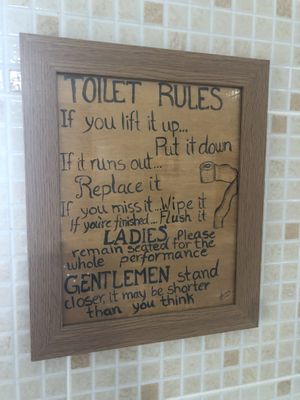 TOILET RULES
If you lift it up...
Put it down
If it runs out...
Replace it
If you miss it...Wipe it
If you're finished...Flush it
LADIES, Please
remain seated for the
whole performance
GENTLEMEN stand
closer, it may be shorter
than you think